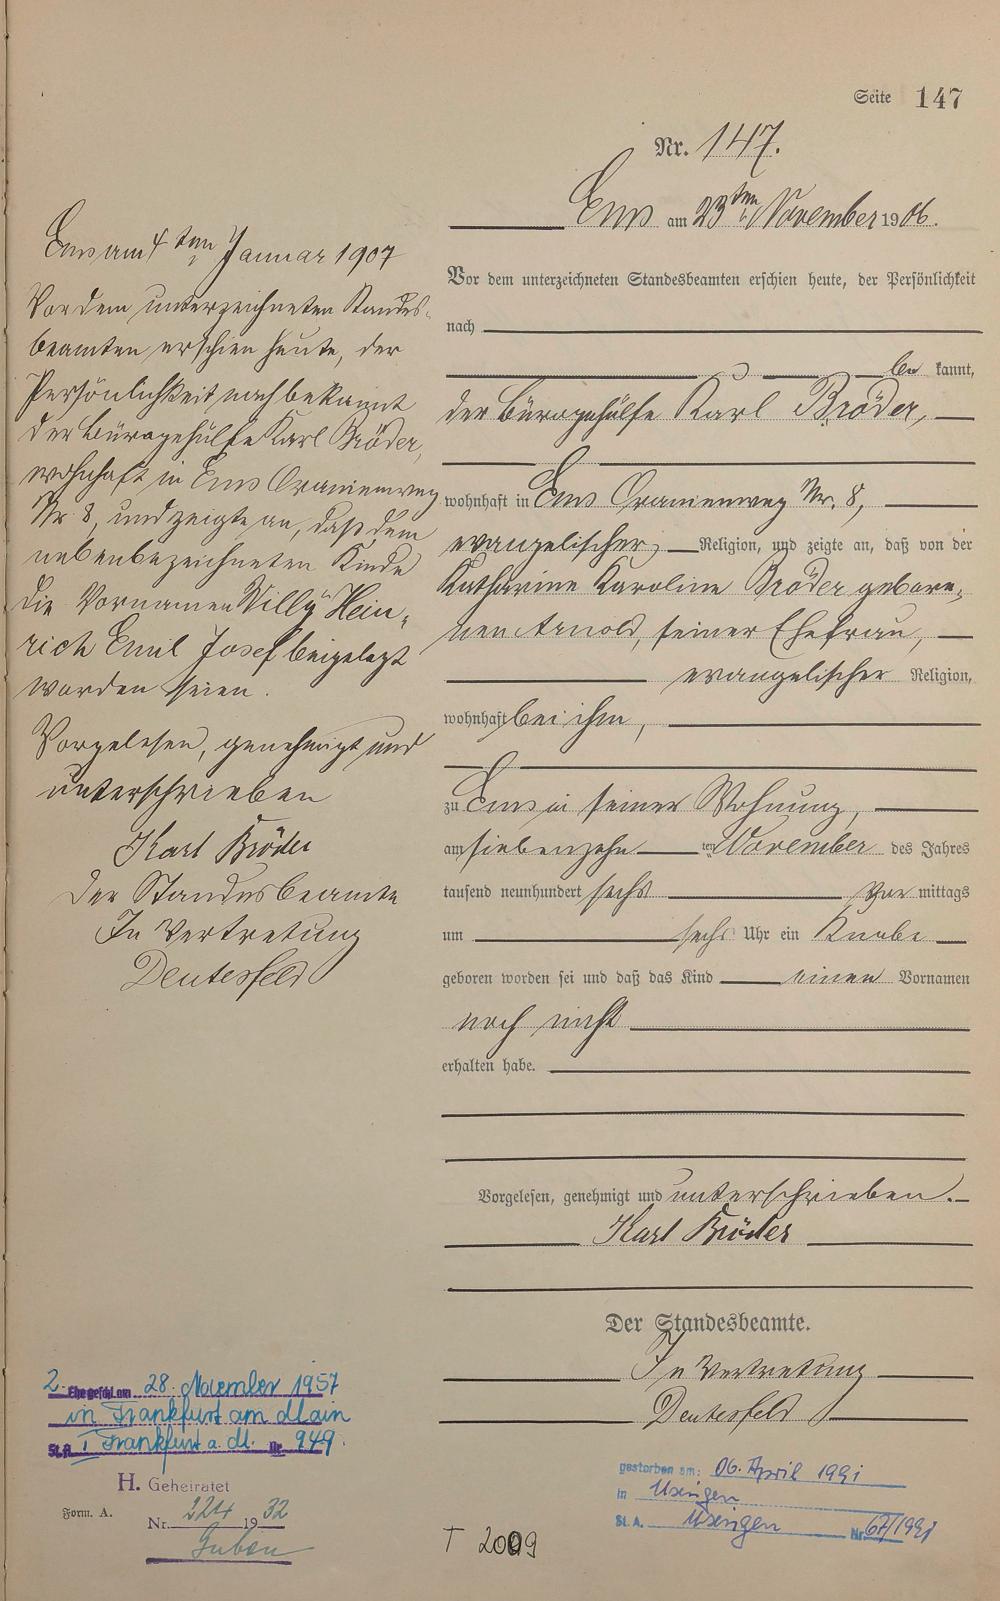 Seite 147
Nr. 147.
Ems am 23ten November 1906.
Vor dem unterzeichneten Standesbeamten erschien heute, der Persönlichkeit
nach
be kannt,
der Bürogehülfe Karl Bröder,
wohnhaft in Ems Oranienweg Nr. 8,
evangelischer Religion, und zeigte an, daß von der
Katharine Karoline Bröder gebore-
nen Arnold, seiner Ehefrau,
evangelischer Religion,
wohnhaft bei ihm,
zu Ems in seiner Wohnung,
am siebenzehn ten November des Jahres
tausend neunhundert sechs Vor mittags
um sechs Uhr ein Knabe
geboren worden sei und daß das Kind einen Vornamen
noch nicht
erhalten habe.
Vorgelesen, genehmigt und unterschrieben.
Karl Bröder
Der Standesbeamte.
In Vertretung
Deutesfeld
Ems am 4ten Januar 1907
Vor dem unterzeichneten Standes-
beamten erschien heute, der
Persönlichkeit nach bekannt
der Bürogehülfe Karl Bröder,
wohnhaft in Ems Oranienweg
Nr 8, und zeigte an, daß dem
nebenbezeichneten Kinde
die Vornamen Willy Hein-
rich Emil Josef beigelegt
worden seien.
Vorgelesen, genehmigt und
unterschrieben
Karl Bröder
Der Standesbeamte
In Vertretung
Deutesfeld
2. Ehe geschl. am 28. November 1957
in Frankfurt am Main
St. A. I Frankfurt a. M. Nr. 949.
H. Geheiratet
Form. A.
Nr. 224 1932
Guben
T 2009
gestorben am: 06. April 1991
in Usingen
St. A. Usingen Nr. 67/1991